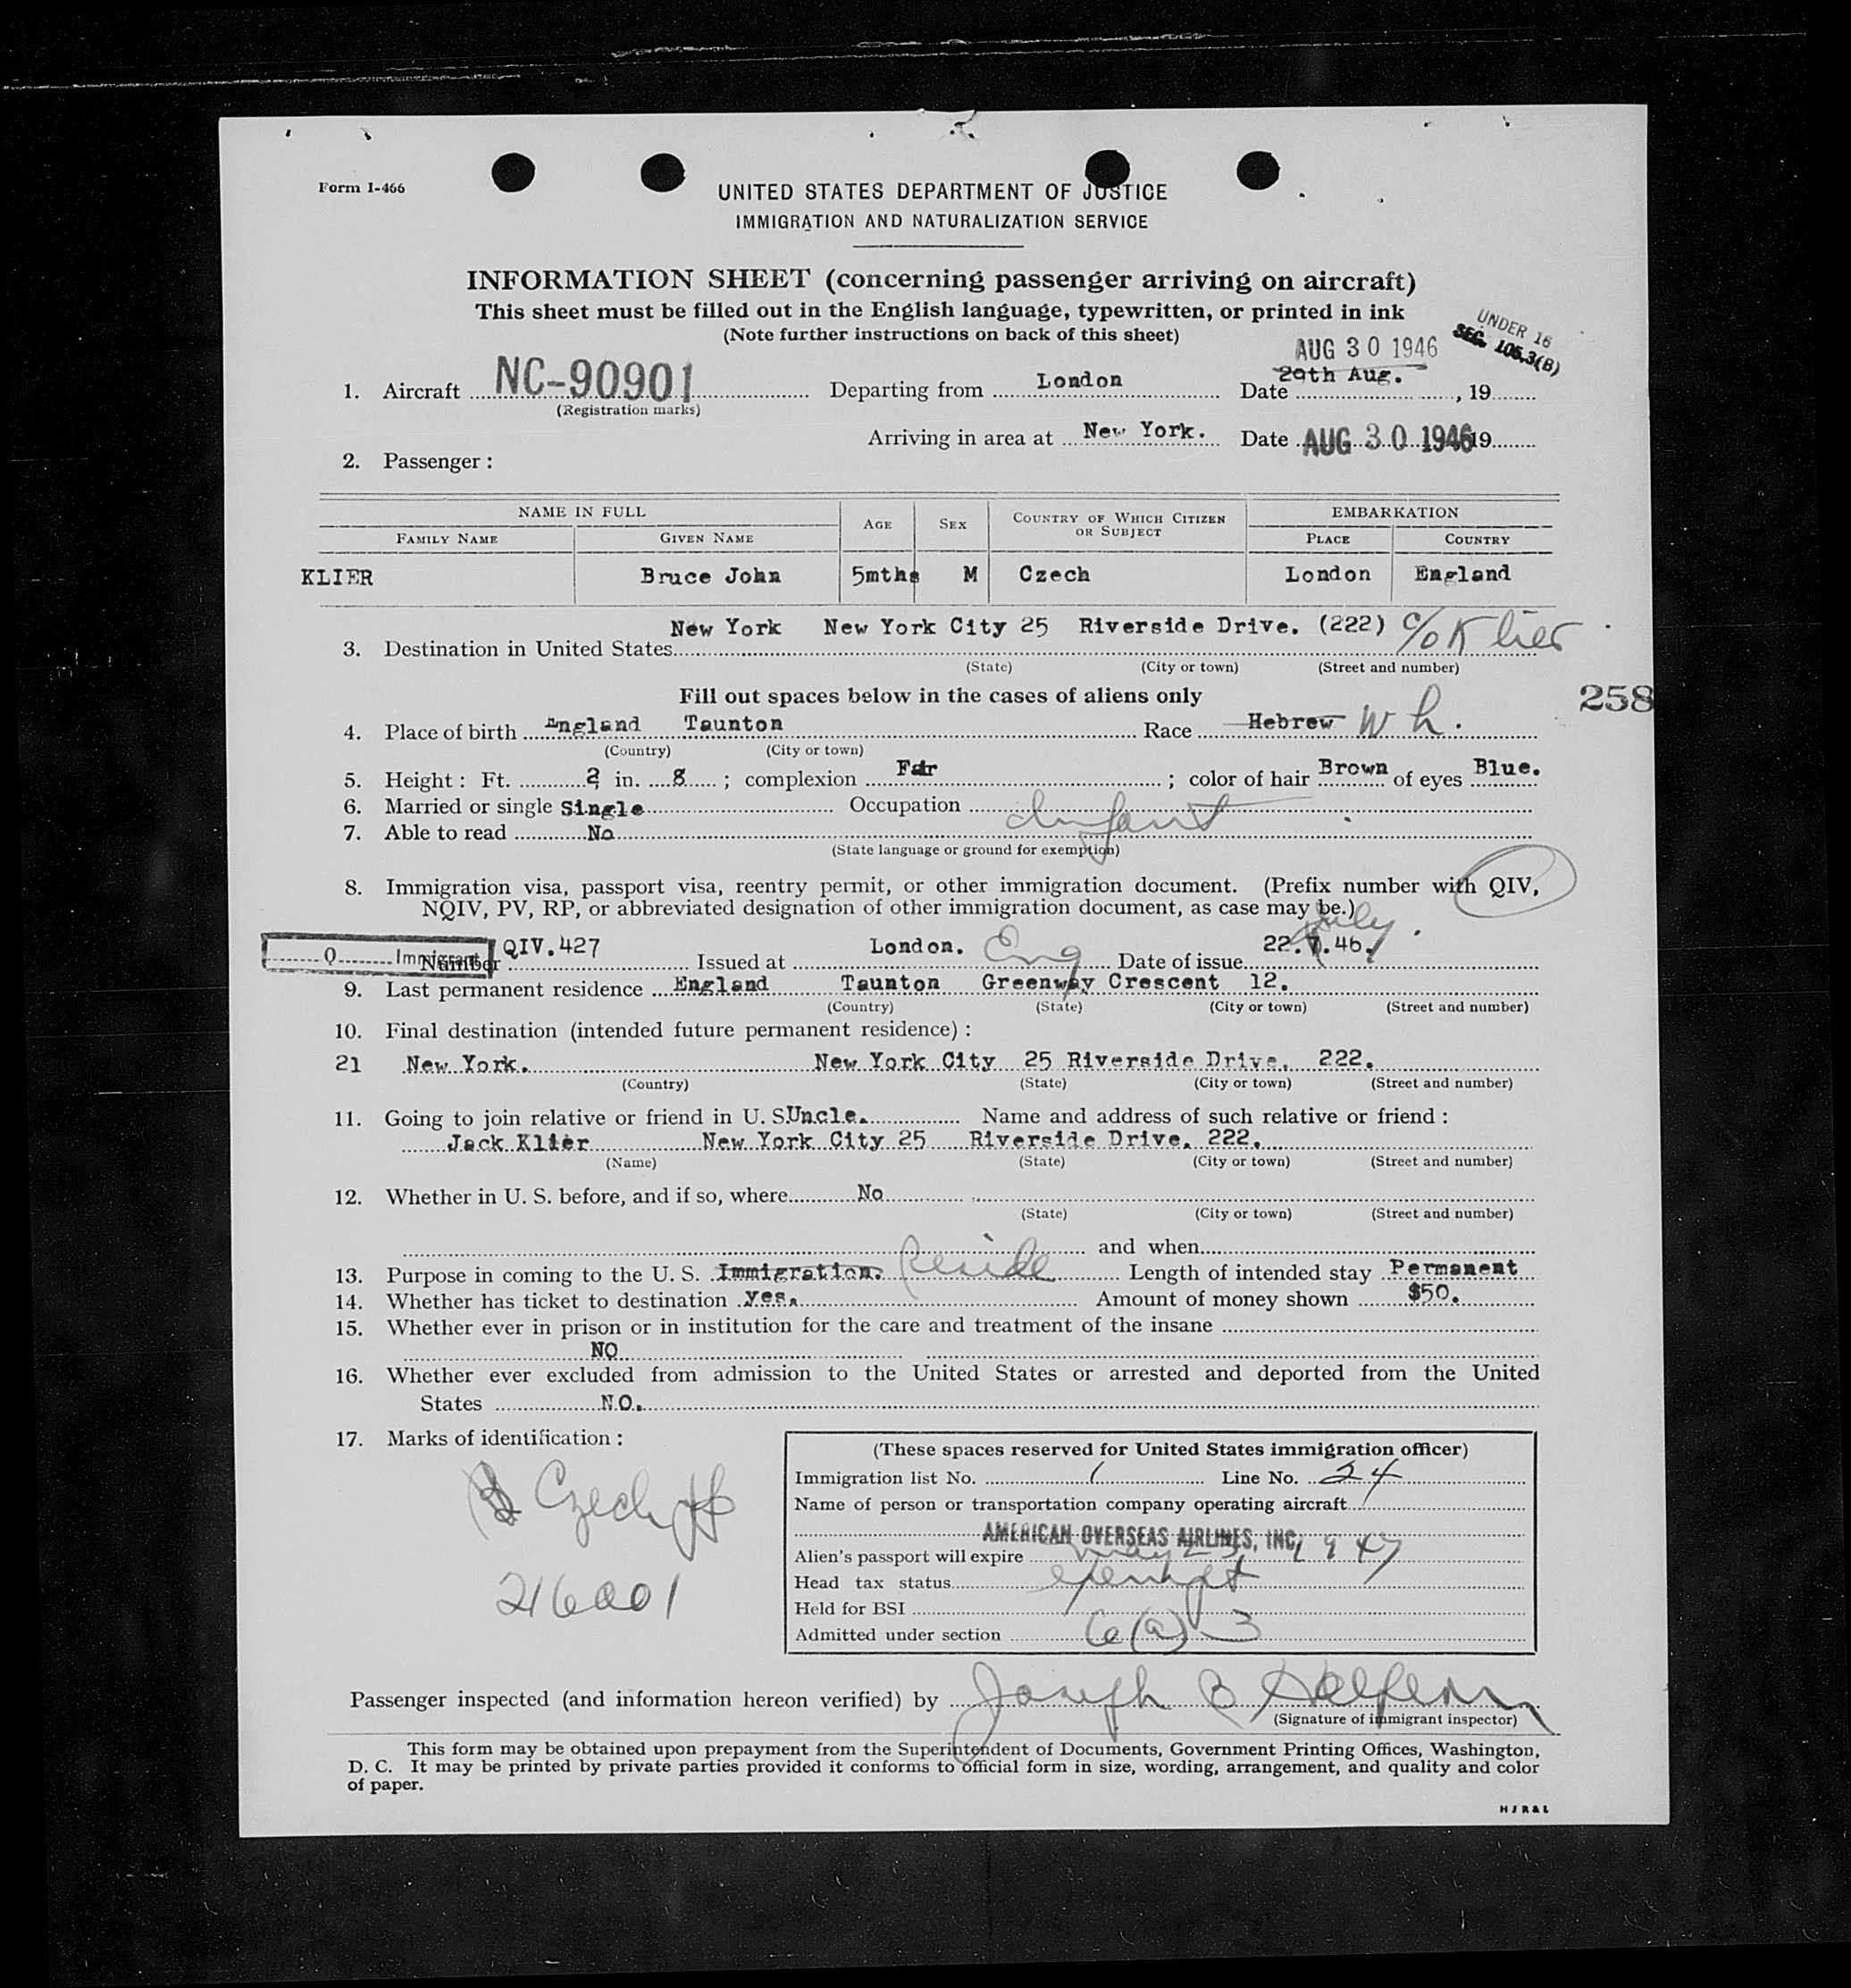 Form I-466
UNITED STATES DEPARTMENT OF JUSTICE
IMMIGRATION AND NATURALIZATION SERVICE
INFORMATION SHEET (concerning passenger arriving on aircraft)
This sheet must be filled out in the English language, typewritten, or printed in ink
(Note further instructions on back of this sheet)
UNDER 16
SEC. 105.3(B)
AUG 30 1946
1. Aircraft NC-90901 Departing from London Date 29th Aug. , 19
(Registration marks)
Arriving in area at New York. Date AUG 30 1946 19
2. Passenger :
NAME IN FULL AGE SEX COUNTRY OF WHICH CITIZEN OR SUBJECT EMBARKATION
FAMILY NAME GIVEN NAME PLACE COUNTRY
KLIER Bruce John 5mths M Czech London England
New York New York City 25 Riverside Drive. (222) c/o Klier
3. Destination in United States
(State) (City or town) (Street and number)
Fill out spaces below in the cases of aliens only
258
4. Place of birth England Taunton Race Hebrew Wh.
(Country) (City or town)
5. Height : Ft. 2 in. 8 ; complexion Fair ; color of hair Brown of eyes Blue.
6. Married or single Single Occupation Infant
7. Able to read No
(State language or ground for exemption)
8. Immigration visa, passport visa, reentry permit, or other immigration document. (Prefix number with QIV,
NQIV, PV, RP, or abbreviated designation of other immigration document, as case may be.)
July
Q Immigrant
Number QIV.427 Issued at London. Eng Date of issue 22.7.46.
9. Last permanent residence England Taunton Greenway Crescent 12.
(Country) (State) (City or town) (Street and number)
10. Final destination (intended future permanent residence) :
21 New York. New York City 25 Riverside Drive, 222.
(Country) (State) (City or town) (Street and number)
11. Going to join relative or friend in U. S. Uncle. Name and address of such relative or friend :
Jack Klier New York City 25 Riverside Drive. 222.
(Name) (State) (City or town) (Street and number)
12. Whether in U. S. before, and if so, where No
(State) (City or town) (Street and number)
and when
13. Purpose in coming to the U. S. Immigration. Reside Length of intended stay Permanent
14. Whether has ticket to destination yes. Amount of money shown $50.
15. Whether ever in prison or in institution for the care and treatment of the insane
NO
16. Whether ever excluded from admission to the United States or arrested and deported from the United
States NO.
17. Marks of identification :
Czech pp
216001
(These spaces reserved for United States immigration officer)
Immigration list No. 1 Line No. 24
Name of person or transportation company operating aircraft
AMERICAN OVERSEAS AIRLINES, INC.
Alien's passport will expire May 23, 1947
Head tax status exempt
Held for BSI
Admitted under section 6(a)3
Passenger inspected (and information hereon verified) by Joseph B Halpern
(Signature of immigrant inspector)
This form may be obtained upon prepayment from the Superintendent of Documents, Government Printing Offices, Washington,
D. C. It may be printed by private parties provided it conforms to official form in size, wording, arrangement, and quality and color
of paper.
HJR&L